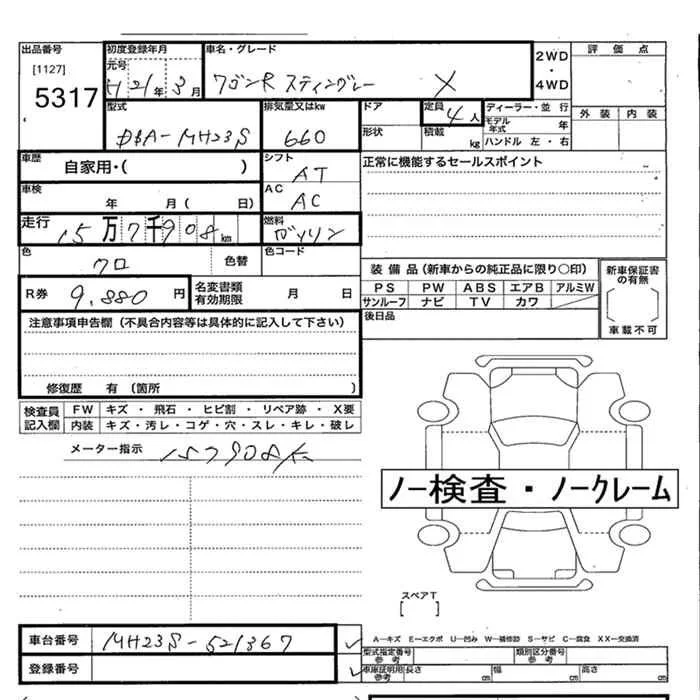 出品番号 初度登録年月 車名・グレード 2WD・4WD 評価点
[1127] 元号
5317 H 21年 3月 ワゴンR スティングレー X
外装 内装
型式 排気量又はkw ドア 定員 4人 ディーラー・並行
DBA-MH23S 660 形状 積載 kg モデル年式 年
ハンドル 左・右
車歴 自家用・( ) シフト AT 正常に機能するセールスポイント
車検 年 月( 日) AC AC
走行 15万7千908km 燃料 ガソリン
色 クロ 色替 色コード
装備品(新車からの純正品に限り○印) 新車保証書の有無
PS PW ABS エアB アルミW
サンルーフ ナビ TV カワ
車載不可
R券 9,880円 名変書類有効期限 月 日 後日品
注意事項申告欄(不具合内容等は具体的に記入して下さい)
修復歴 有(箇所
検査員記入欄 FW キズ・飛石・ヒビ割・リペア跡・X要
内装 キズ・汚レ・コゲ・穴・スレ・キレ・破レ
メーター指示 157908K
ノー検査・ノークレーム
スペアT
[ ]
車台番号 MH23S-521367
登録番号
A-キズ E-エクボ U-凹み W-補修跡 S-サビ C-腐食 XX-交換済
型式指定番号 参考 類別区分番号 参考
車庫証明用 参考 長さ cm 幅 cm 高さ cm